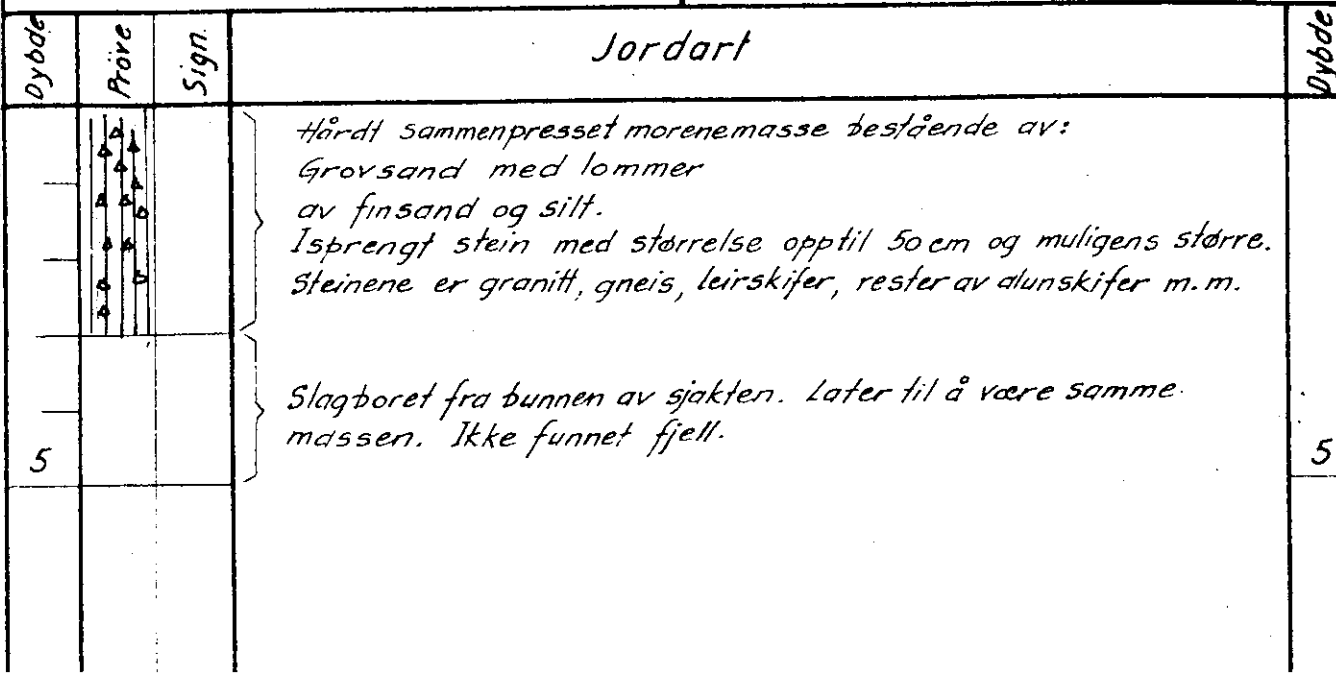 Dybde Pröve Sign. Jordart Dybde
Hårdt sammenpresset morenemasse bestående av:
Grovsand med lommer
av finsand og silt.
Isprengt stein med størrelse opptil 50 cm og muligens større.
Steinene er granitt, gneis, leirskifer, rester av alunskifer m.m.
Slagboret fra bunnen av sjakten. Later til å være samme
massen. Ikke funnet fjell.
5 5